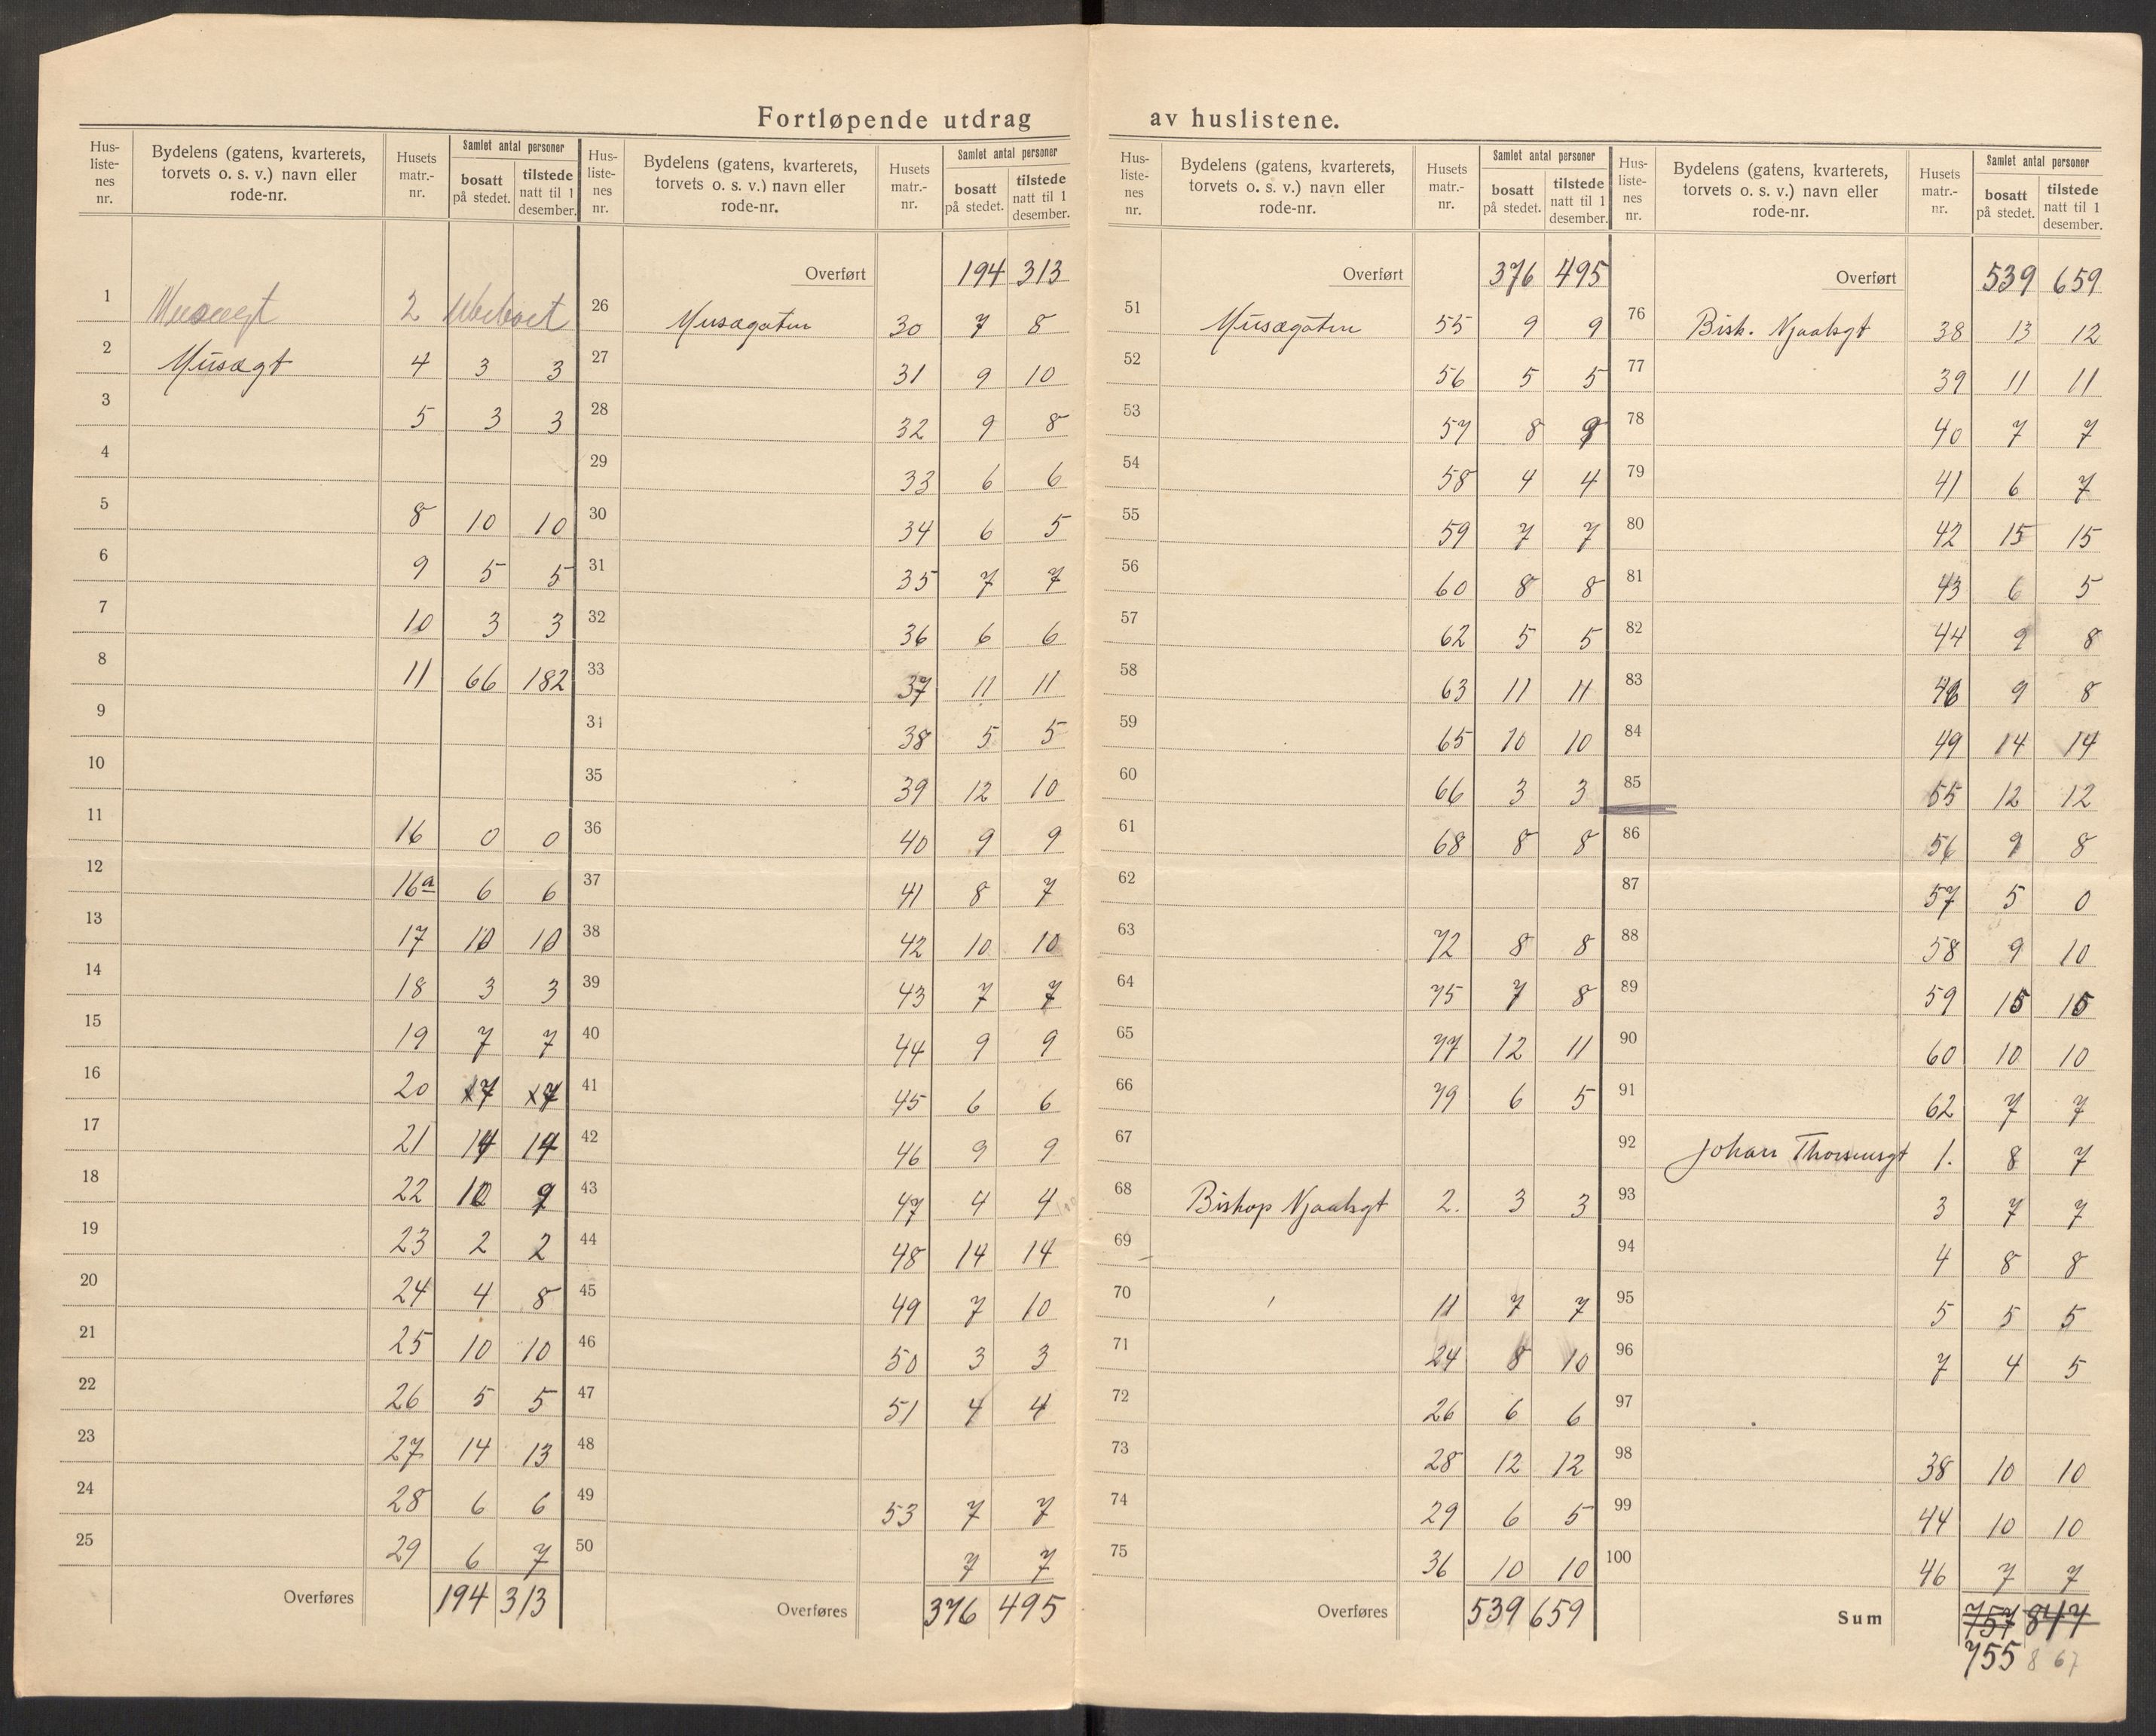 Fortløpende utdrag av huslistene.
Hus-listenes nr. | Bydelens (gatens, kvarterets, torvets o. s. v.) navn eller rode-nr. | Husets matr.-nr. | Samlet antal personer bosatt på stedet. | tilstede natt til 1 desember.
1 Museegt 2 Ubeboet
2 Musægt 4 3 3
3 5 3 3
4
5 8 10 10
6 9 5 5
7 10 3 3
8 11 66 182
9
10
11 16 0 0
12 16a 6 6
13 17 10 10
14 18 3 3
15 19 7 7
16 20 x7 x7
17 21 14 14
18 22 10 9
19 23 2 2
20 24 4 8
21 25 10 10
22 26 5 5
23 27 14 13
24 28 6 6
25 29 6 7
Overføres 194 313
Hus-listenes nr. | Bydelens (gatens, kvarterets, torvets o. s. v.) navn eller rode-nr. | Husets matr.-nr. | Samlet antal personer bosatt på stedet. | tilstede natt til 1 desember.
Overført 194 313
26 Musægaten 30 7 8
27 31 9 10
28 32 9 8
29 33 6 6
30 34 6 5
31 35 7 7
32 36 6 6
33 37 11 11
34 38 5 5
35 39 12 10
36 40 9 9
37 41 8 7
38 42 10 10
39 43 7 7
40 44 9 9
41 45 6 6
42 46 9 9
43 47 4 4
44 48 14 14
45 49 7 10
46 50 3 3
47 51 4 4
48
49 53 7 7
50 7 7
Overføres 376 495
Hus-listenes nr. | Bydelens (gatens, kvarterets, torvets o. s. v.) navn eller rode-nr. | Husets matr.-nr. | Samlet antal personer bosatt på stedet. | tilstede natt til 1 desember.
Overført 376 495
51 Musægaten 55 9 9
52 56 5 5
53 57 8 9
54 58 4 4
55 59 7 7
56 60 8 8
57 62 5 5
58 63 11 11
59 65 10 10
60 66 3 3
61 68 8 8
62
63 72 8 8
64 75 7 8
65 77 12 11
66 79 6 5
67
68 Biskop Njaalsgt 2. 3 3
69
70 11 7 7
71 24 8 10
72 26 6 6
73 28 12 12
74 29 6 5
75 36 10 10
Overføres 539 659
Hus-listenes nr. | Bydelens (gatens, kvarterets, torvets o. s. v.) navn eller rode-nr. | Husets matr.-nr. | Samlet antal personer bosatt på stedet. | tilstede natt til 1 desember.
Overført 539 659
76 Bisk. Njaalsgt 38 13 12
77 39 11 11
78 40 7 7
79 41 6 7
80 42 15 15
81 43 6 5
82 44 9 8
83 46 9 8
84 49 14 14
85 55 12 12
86 56 9 8
87 57 5 0
88 58 9 10
89 59 15 15
90 60 10 10
91 62 7 7
92 Johan Thorsensgt 1. 8 7
93 3 7 7
94 4 8 8
95 5 5 5
96 7 4 5
97
98 38 10 10
99 44 10 10
100 46 7 7
Sum 757 847
755 867